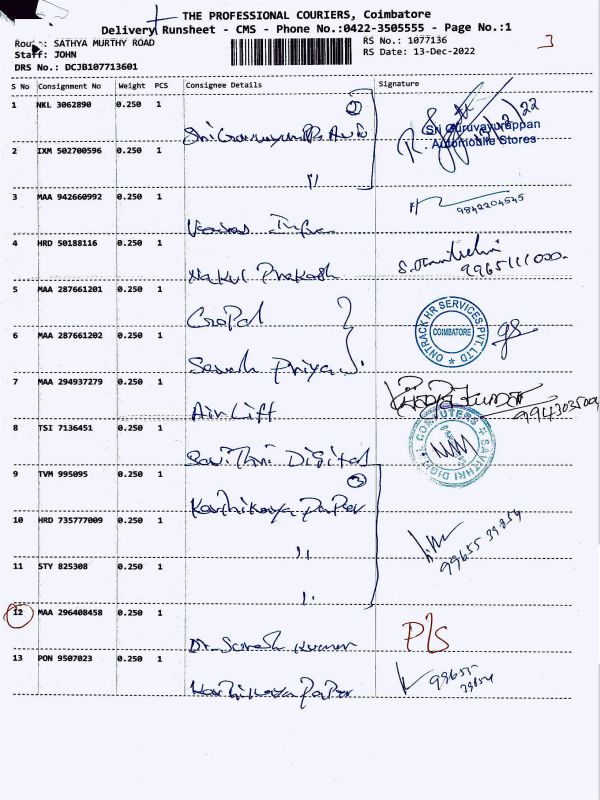 THE PROFESSIONAL COURIERS, Coimbatore
Delivery Runsheet - CMS - Phone No.:0422-3505555 - Page No.:1
Route: SATHYA MURTHY ROAD
RS No.: 1077136
3
Staff: JOHN
RS Date: 13-Dec-2022
DRS No.: DCJB107713601
S No Consignment No Weight PCS Consignee Details Signature
1 NKL 3062890 0.250 1
2
Sri Guruvayurappan
Automobile Stores
2 IXM 502700596 0.250 1
"
3 MAA 942660992 0.250 1
9842204545
4 HRD 50188116 0.250 1
Nakul Prakash
9965111000-
5 MAA 287661201 0.250 1
Gopal
ONTRACK HR SERVICES PVT. LTD
COIMBATORE
6 MAA 287661202 0.250 1
Priya
7 MAA 294937279 0.250 1
Air Lift
8 TSI 7136451 0.250 1
Savithri Digital
COMPUTERS
9 TVM 995095 0.250 1
3
Karthikeya Paper
10 HRD 735777009 0.250 1
"
99655 39854
11 STY 825308 0.250 1
"
12 MAA 296408458 0.250 1
Dr. Suresh Kumar
P/S
13 PON 9507023 0.250 1
Karthikeya Paper
99655-
39854